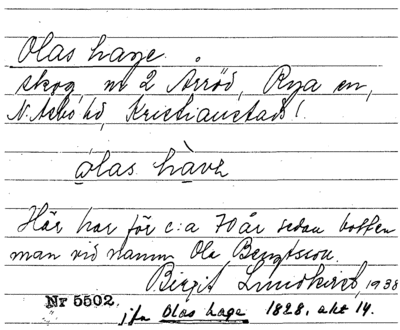 Olas hage.
skog, nr 2 Årröd, Rya sn,
N. Åsbo hd, Kristianstads l.
ølas hàvə
Här har för c:a 70 år sedan bott en
man vid namn Ola Bengtsson.
Birgit Lundkvist, 1938
Nr 5502.
jfr Olas hage 1828, akt 14.